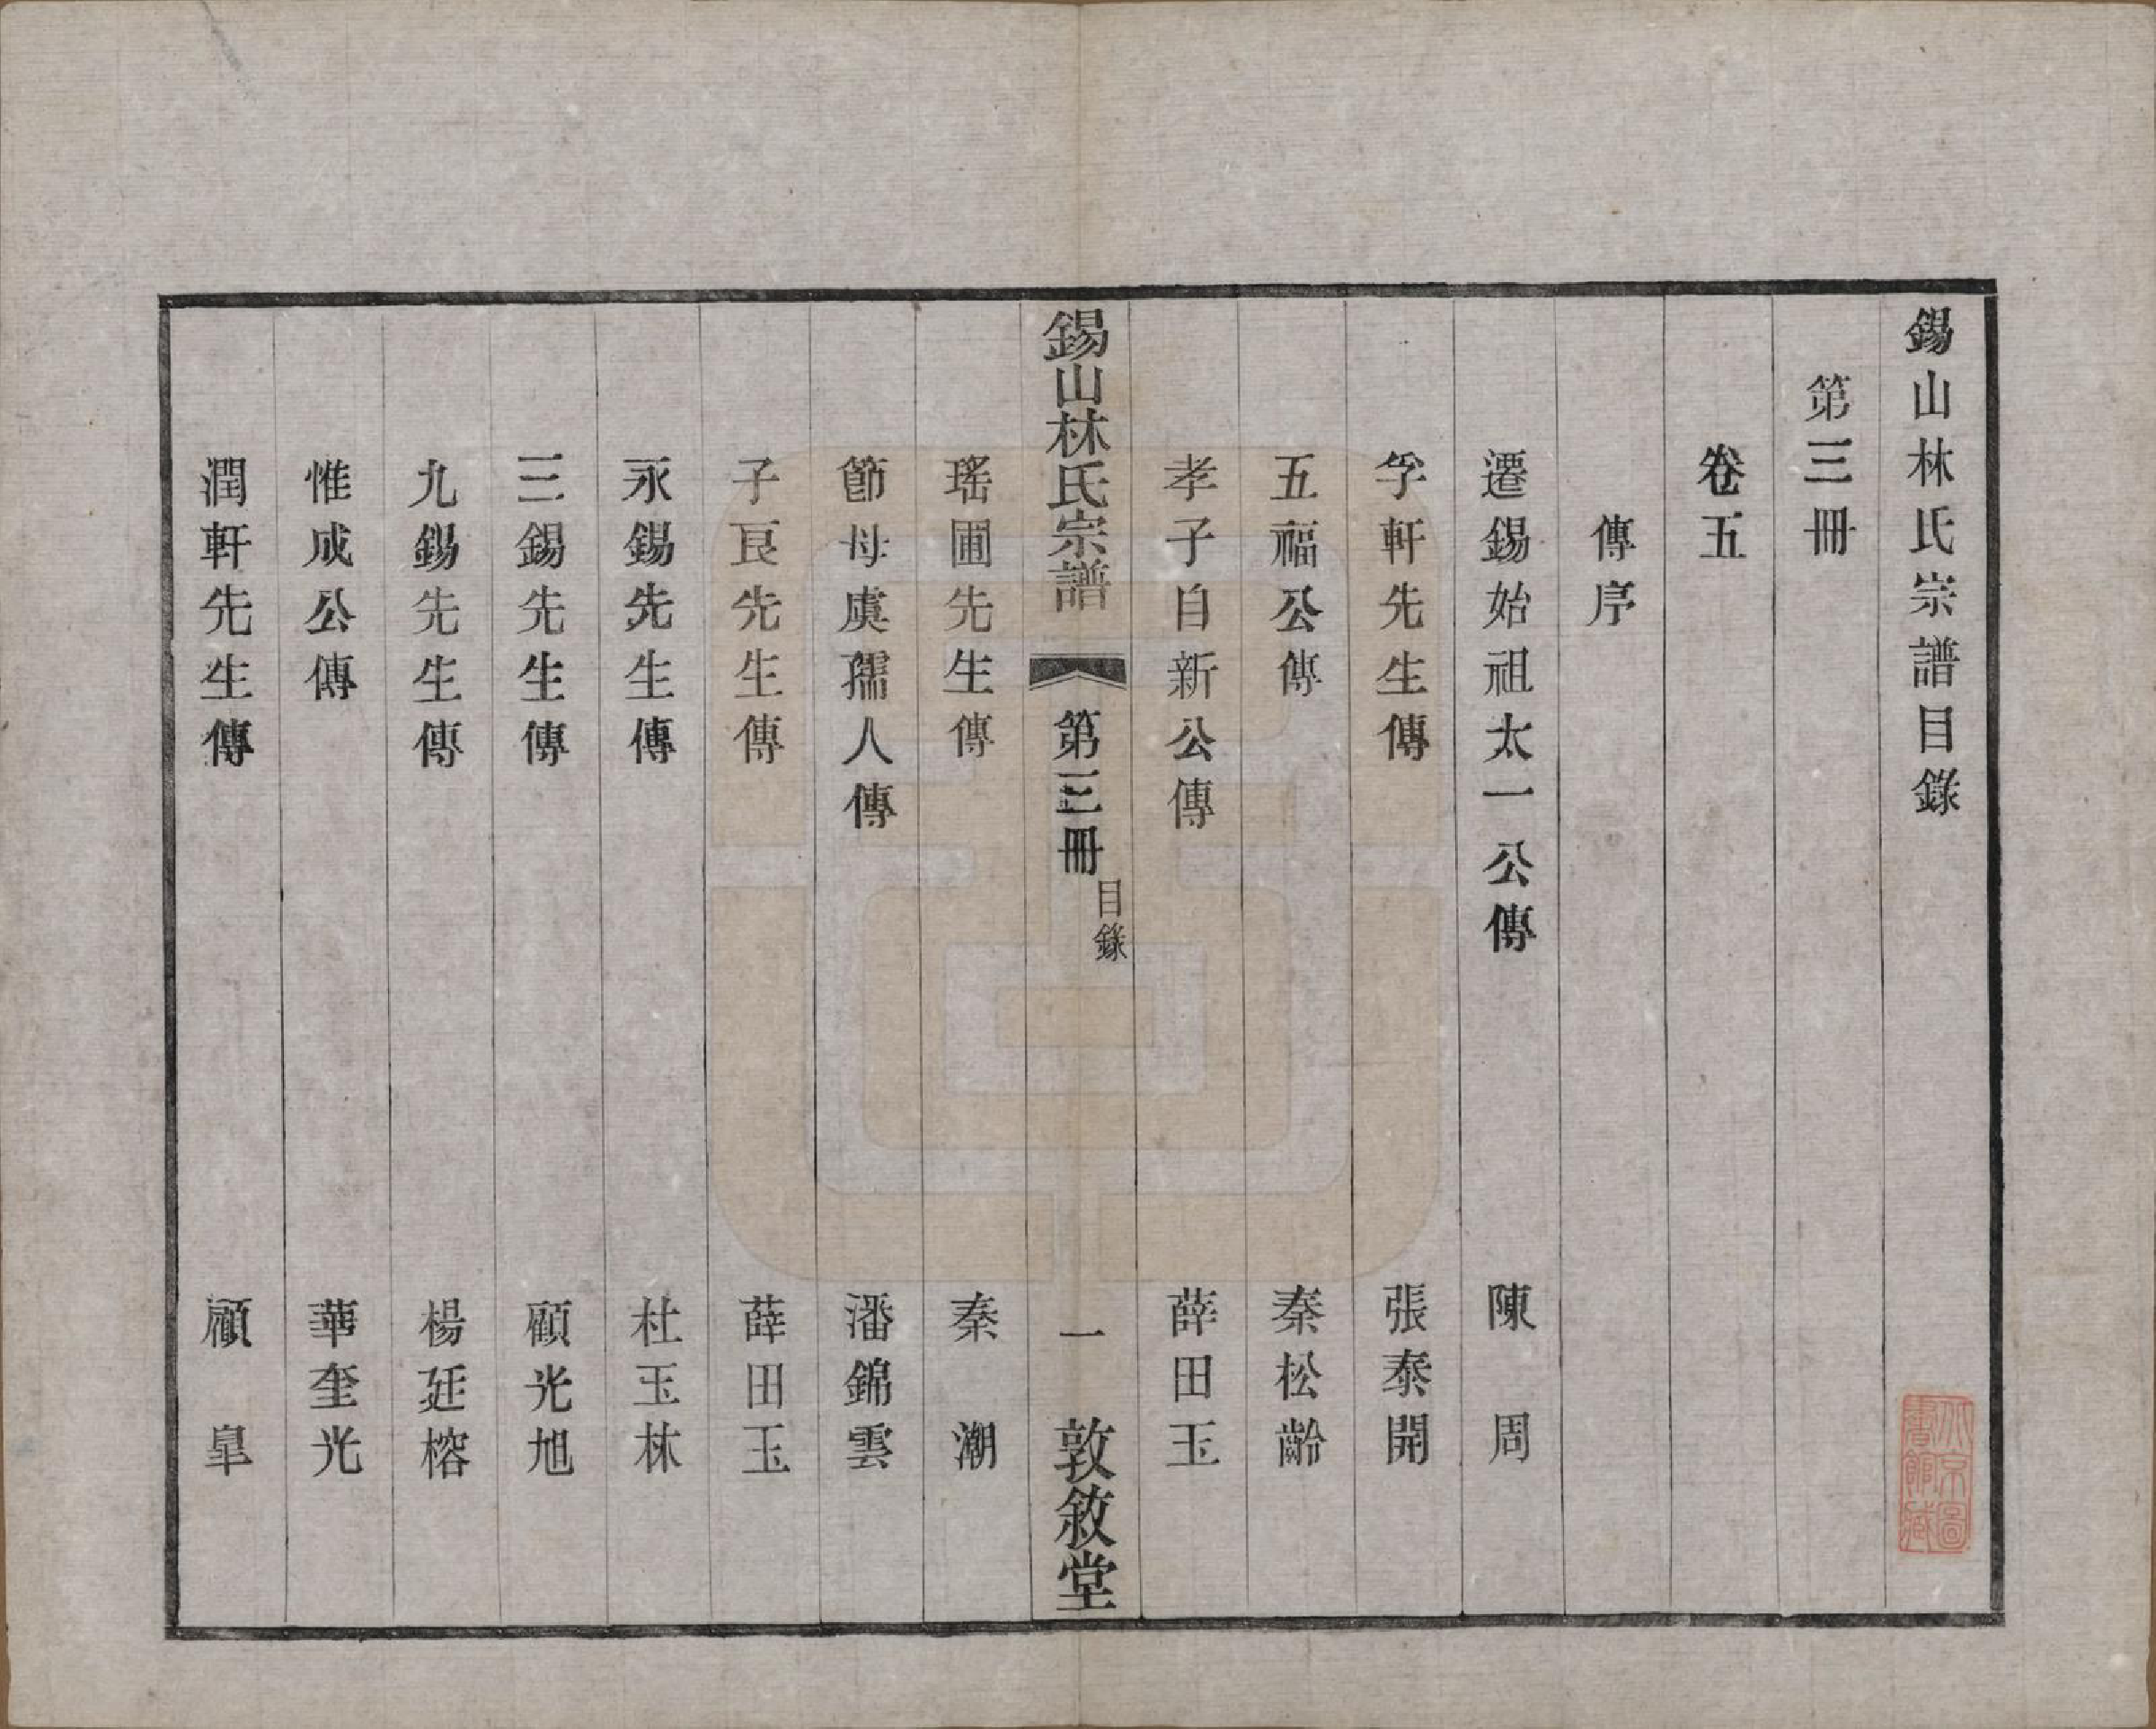 錫山林氏宗譜目錄
第三冊
卷五
傳序
遷錫始祖太一公傳　陳　周
孚軒先生傳　張泰開
五福公傳　秦松齡
孝子自新公傳　薛田玉
錫山林氏宗譜　第三冊　目錄　一　敦敘堂
瑤圃先生傳　秦　潮
節母虞孺人傳　潘錦雲
子良先生傳　薛田玉
永錫先生傳　杜玉林
三錫先生傳　顧光旭
九錫先生傳　楊廷榕
惟成公傳　華奎光
潤軒先生傳　顧　皐
北京圖書館藏